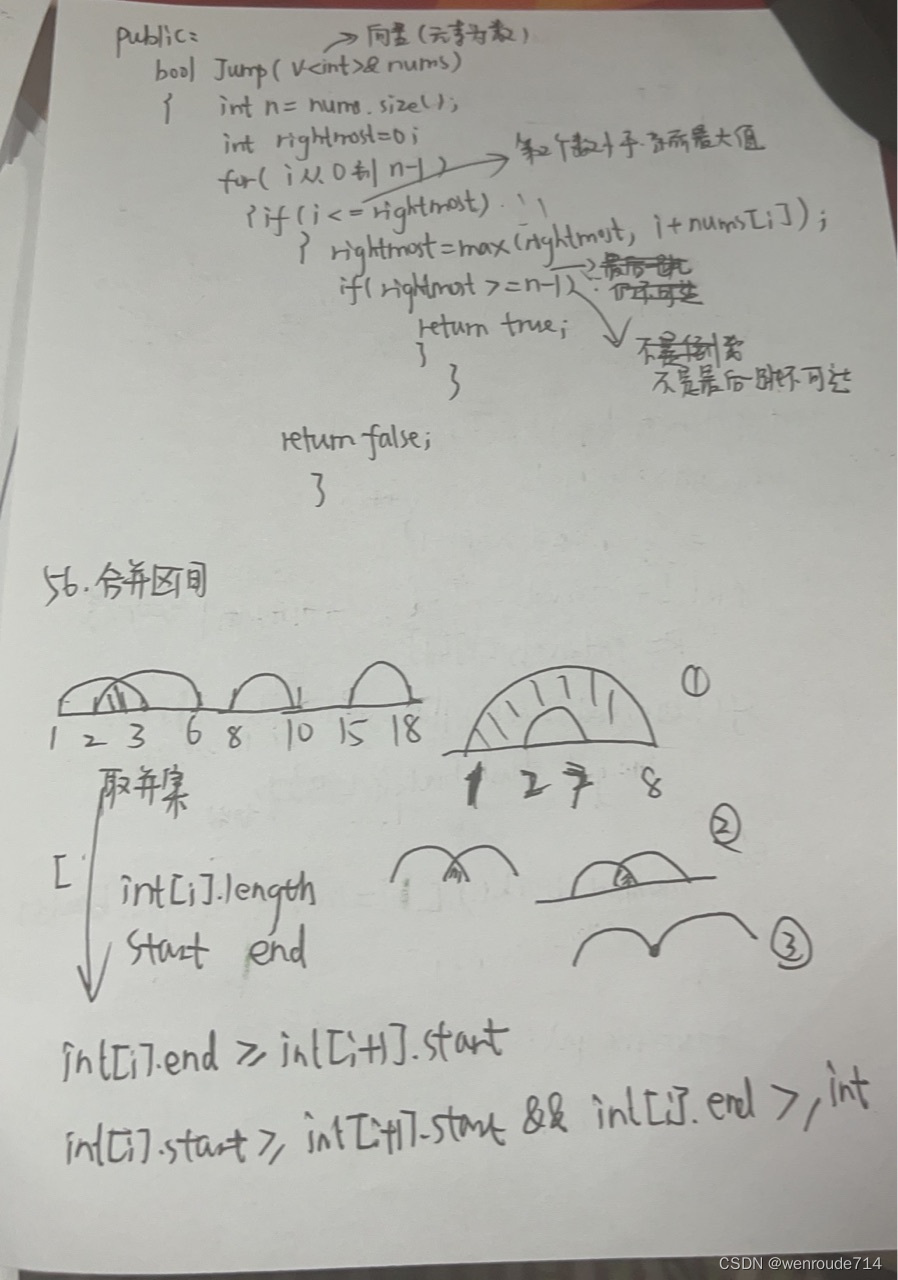 public:
→ 向量(元素为数)
bool Jump( V<int>& nums)
{ int n= nums.size();
int rightmost=0;
for( i从0到 n-1 )
→ 第2个数小于
最大值
{ if( i <= rightmost)
} rightmost=max(rightmost, i+nums[i]);
if( rightmost >=n-1)
return true;
}
不是最后一跳不可达
}
return false;
}
56.合并区间
1 2 3 6 8 10 15 18
①
1 2 7 8
取并集
②
[
int[i].length
start end
③
int[i].end ≥ int[i+1].start
int[i].start ≥ int[i+1].start && int[i].end ≥ int
CSDN @wenroude714